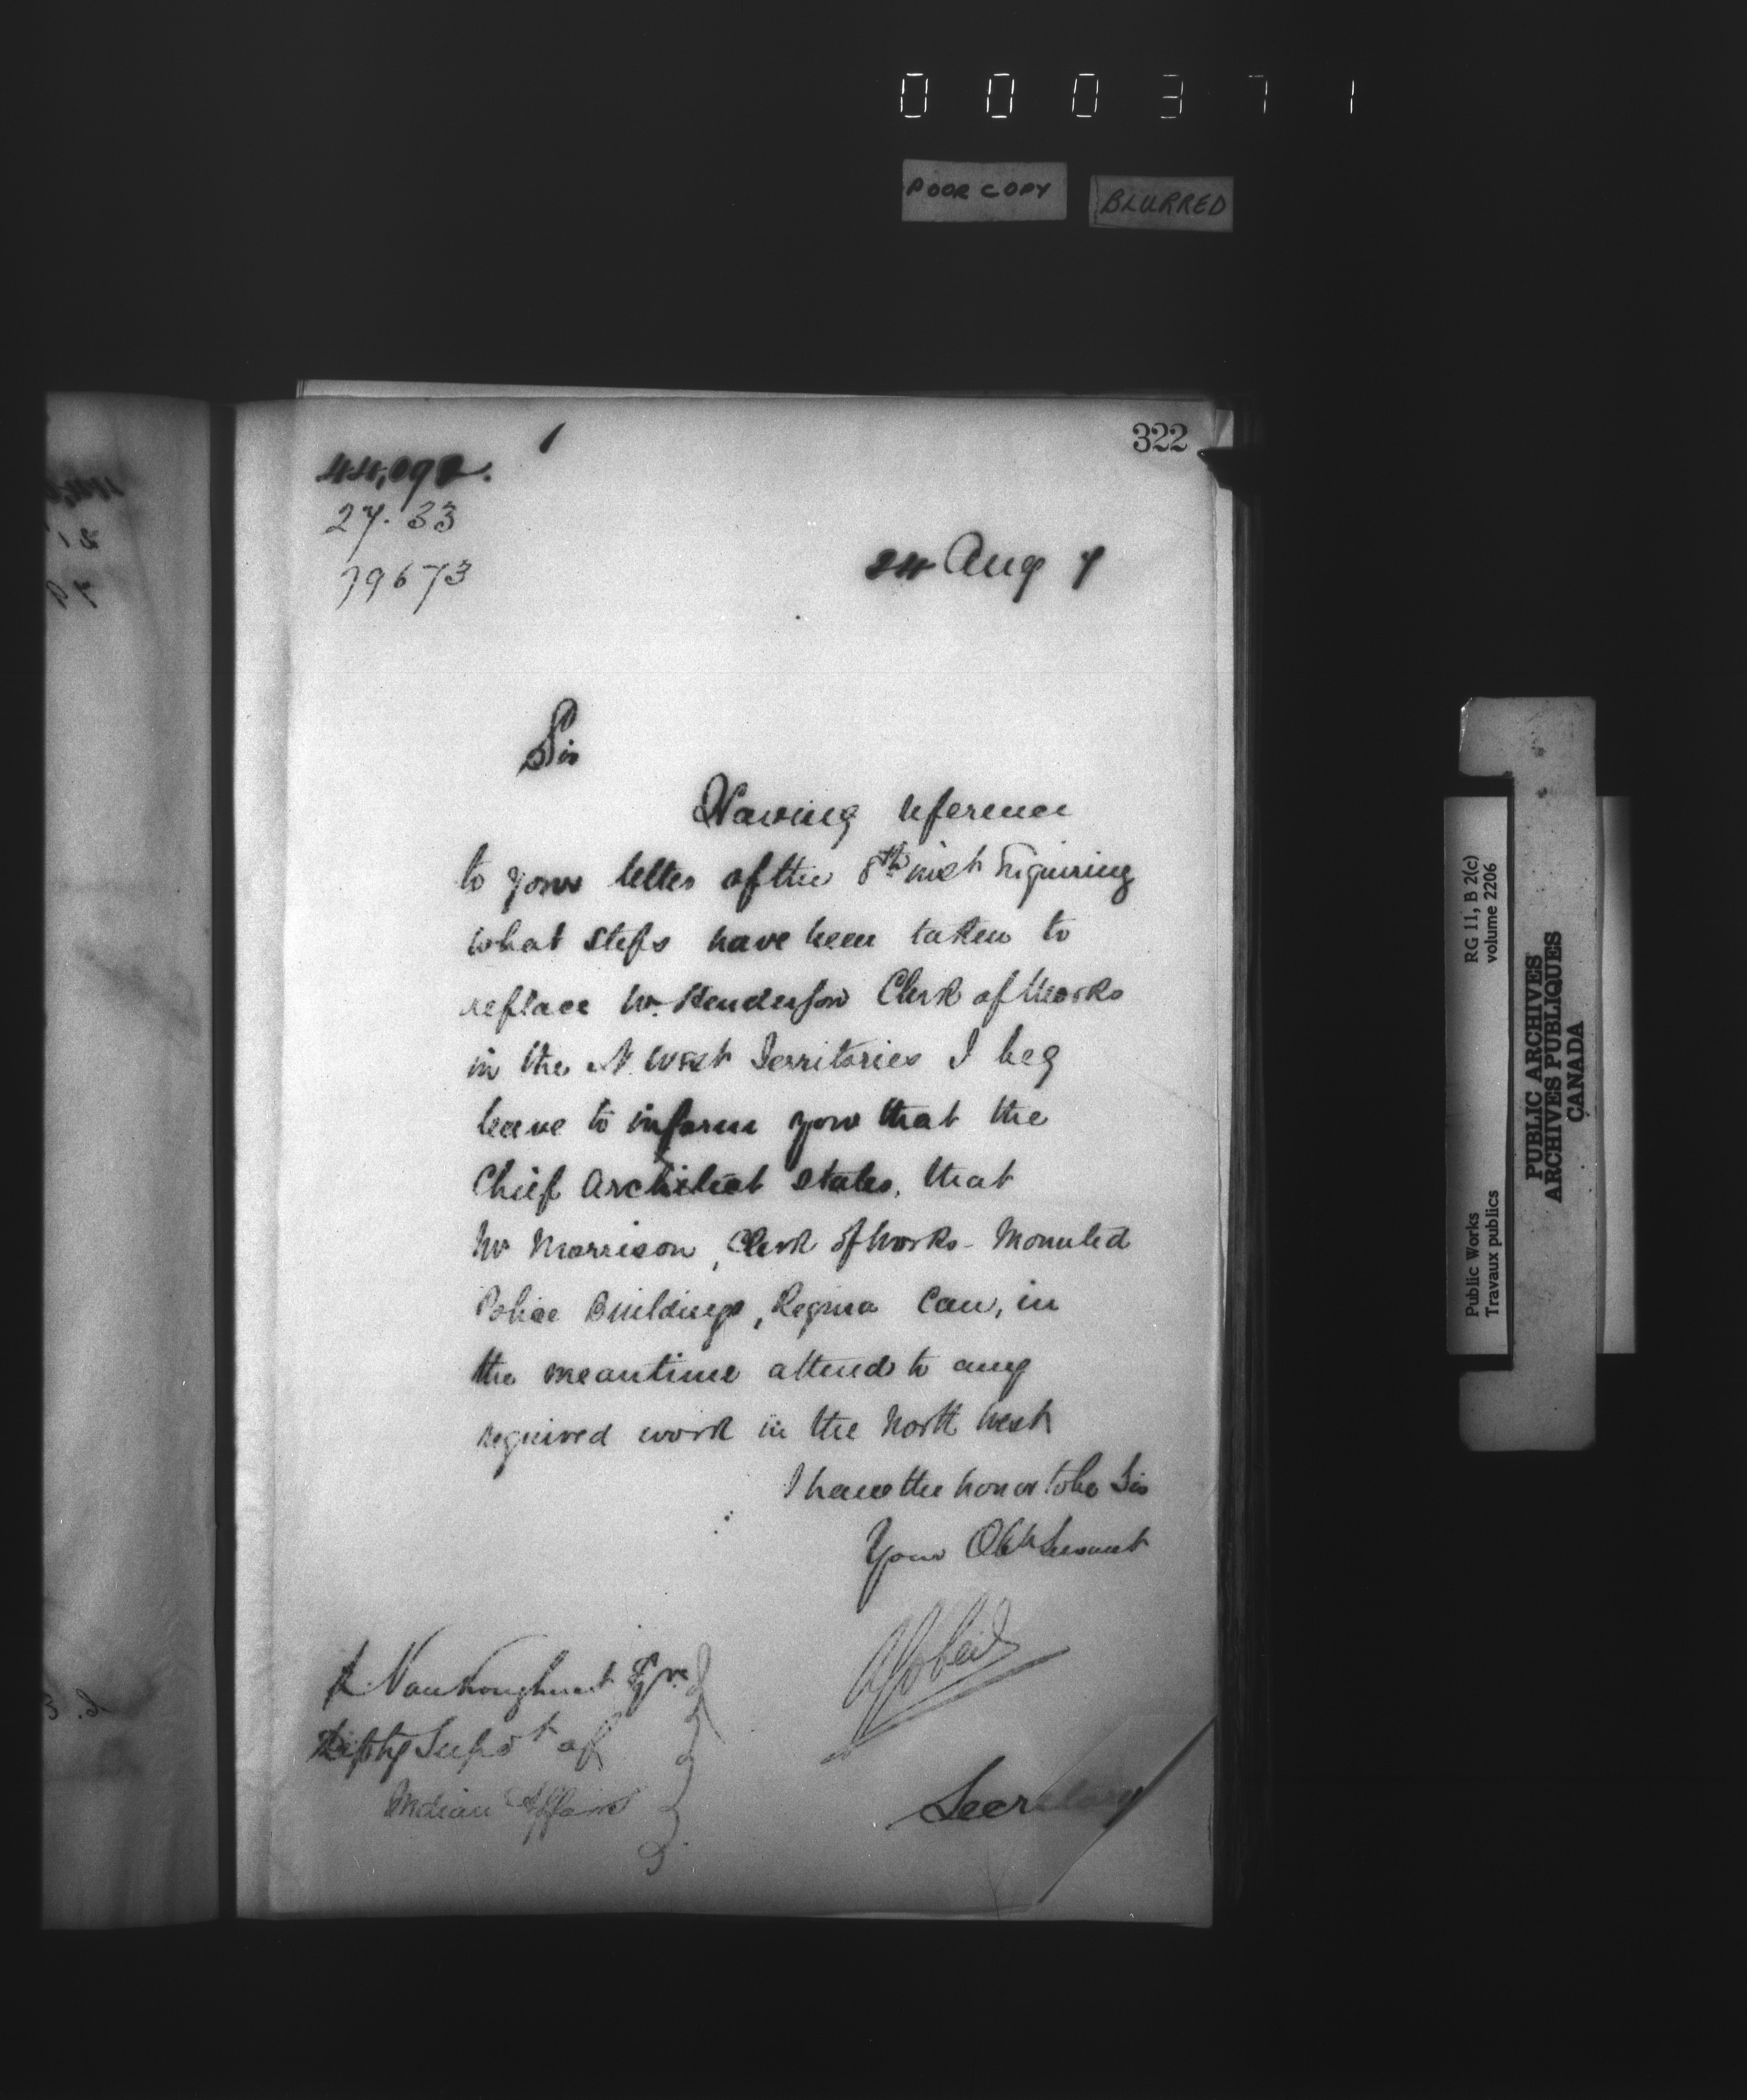 0 0 0 3 7 1
POOR COPY BLURRED
322
1
27.33
79673
24 Aug 7
Sir
Having reference
to your letter of the 8th inst enquiring
what steps have been taken to
replace Mr. Henderson Clerk of Works
in the N. West Territories I beg
leave to inform you that the
Chief Architect states, that
Mr Morrison, Clerk of Works - Mounted
Police Buildings, Regina can, in
the meantime attend to any
required work in the North West
I have the honor to be Sir
Your Obt Servant
L Vankoughnet Esqre
Depty Supdt of
Indian Affairs
Secretary
RG 11, B 2(c)
volume 2206
Public Works
Travaux publics
PUBLIC ARCHIVES
ARCHIVES PUBLIQUES
CANADA